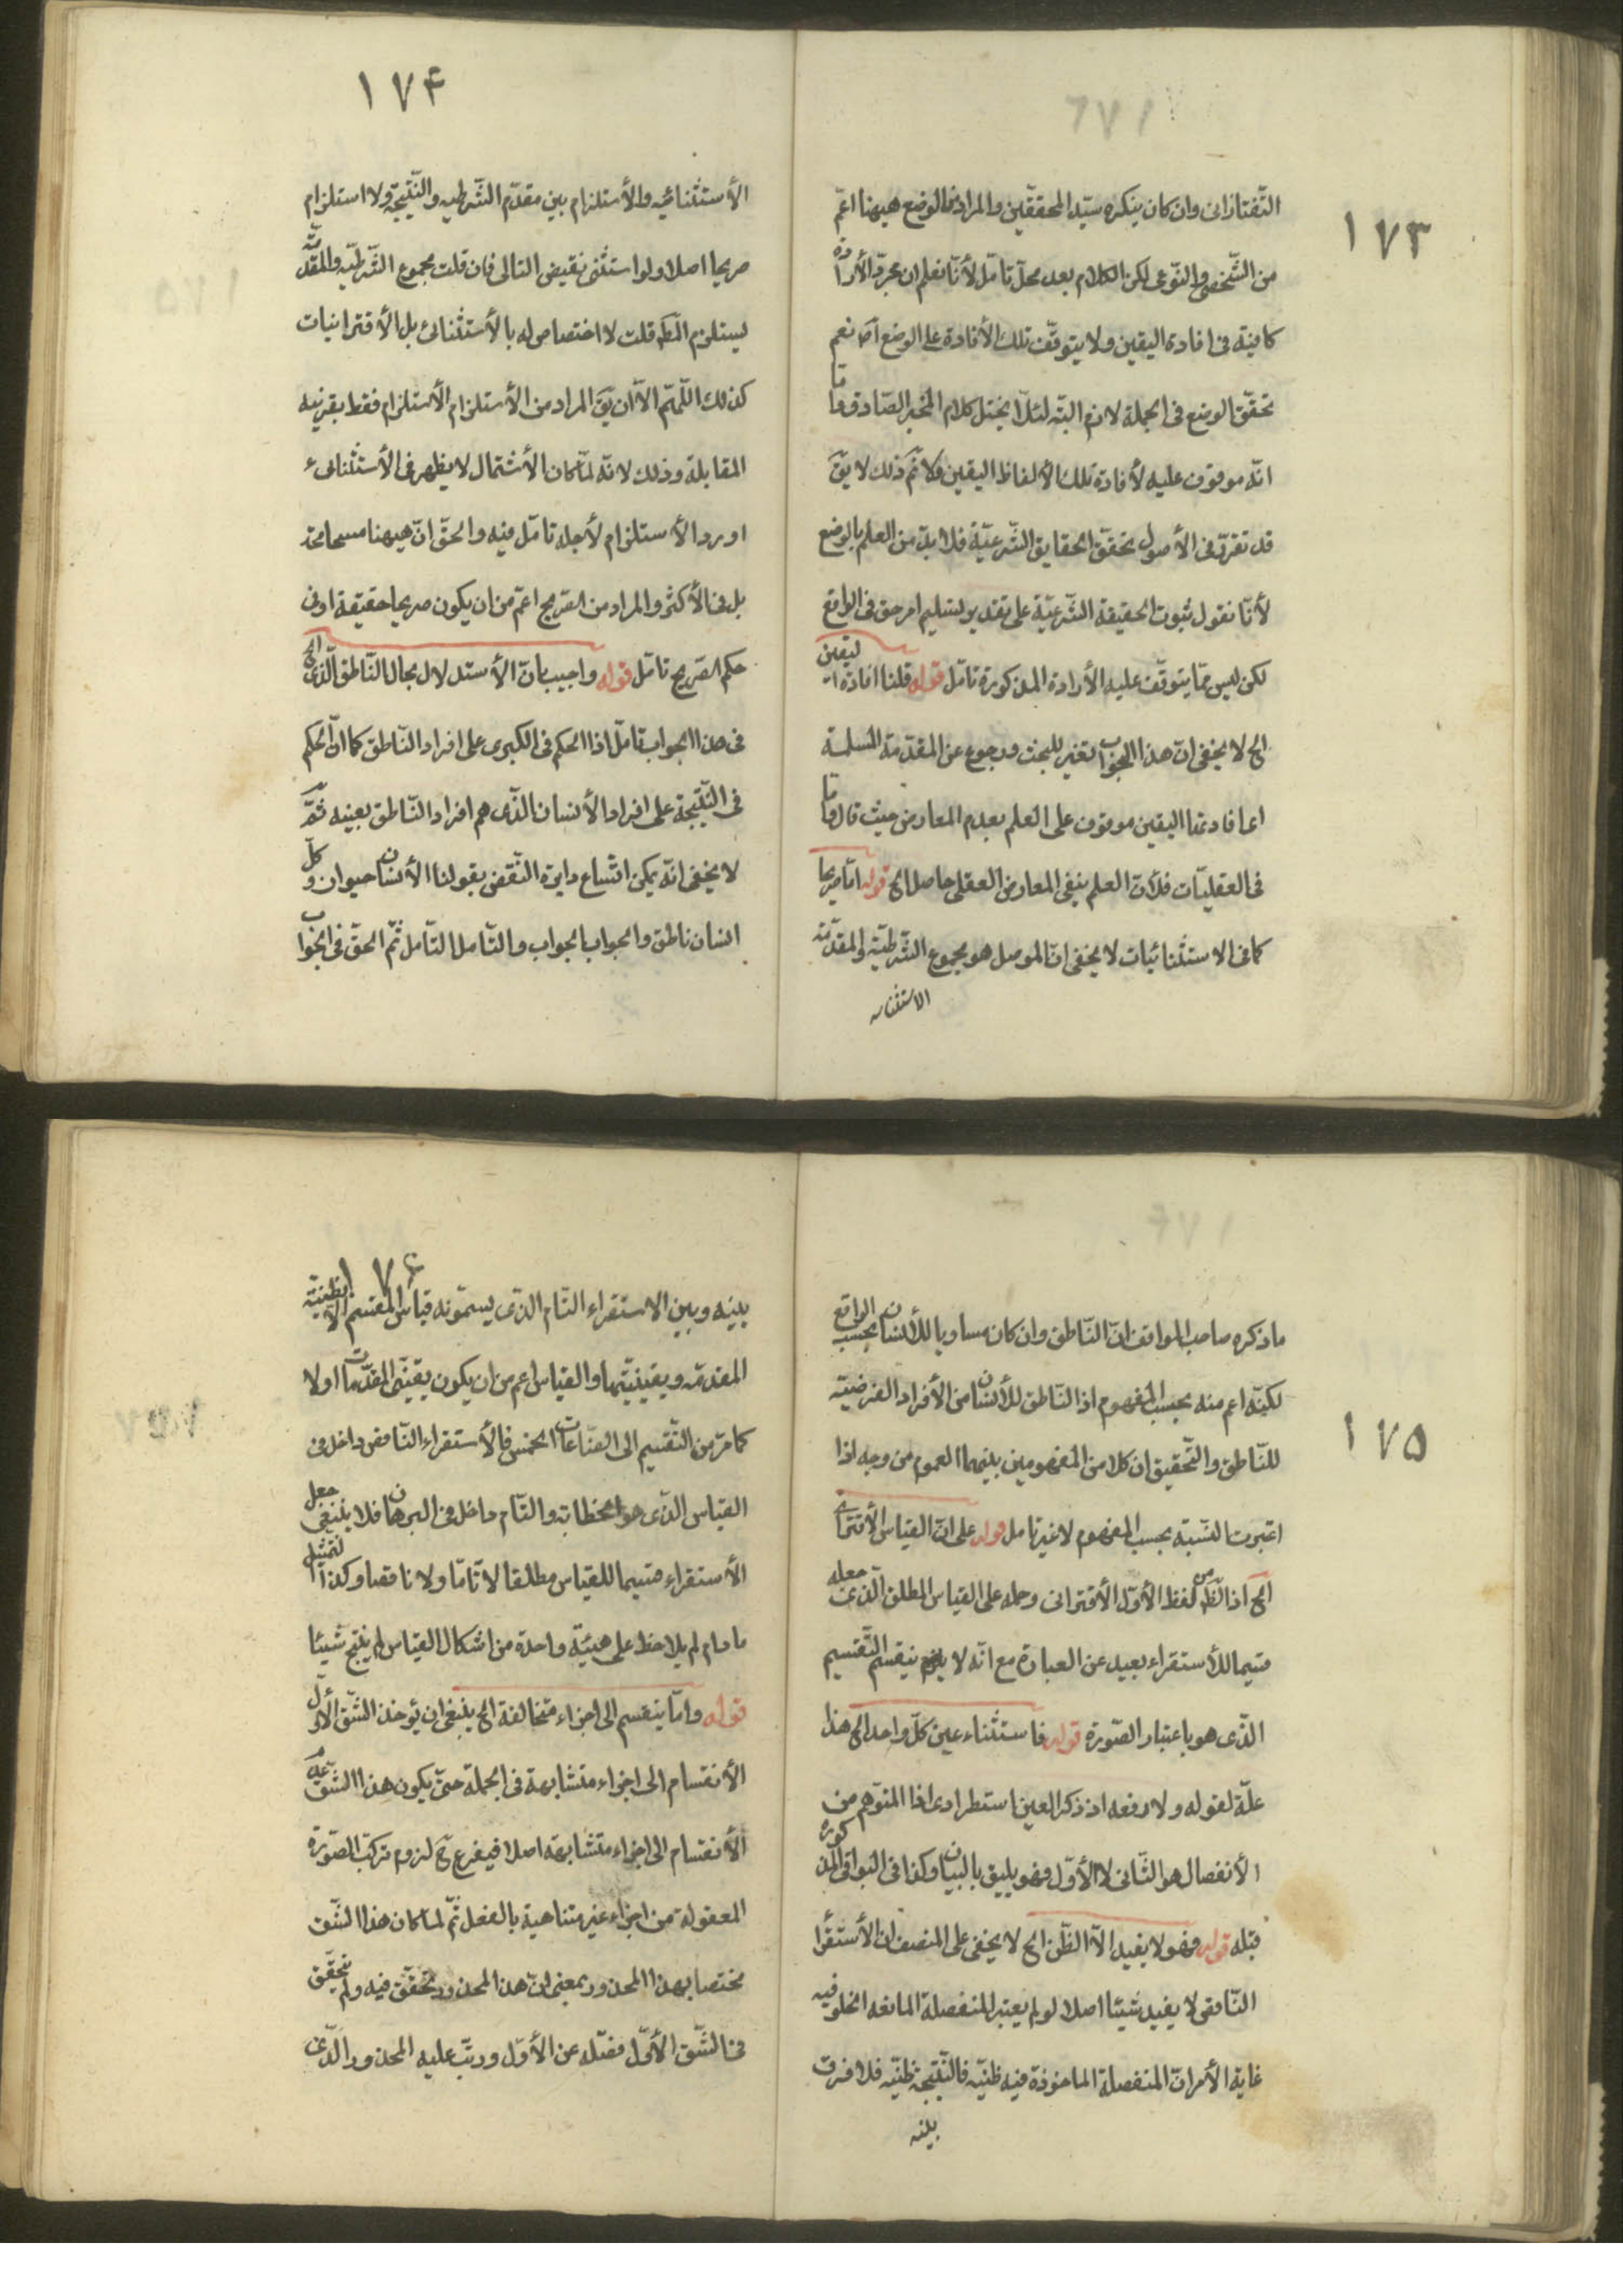 ١٧٣
التّفتازانى وان كان ينكره سيّد المحقّقين والمراد بالوضع هيهنا اعمّ
من الشّخصى والنّوعى لكن الكلام بعد محلّ تامّل لأنّا نعلم ان مجرّد الأرادة
كافية فى افادة اليقين ولا يتوقّف تلك الأفادة على الوضع اصلا نعم
تحقّق الوضع فى الجملة لازم البتّه لئلّا يختل كلام المخبر الصّادق وامّا
انّه موقوف عليه لأفادة تلك الألفاظ اليقين فلا ثمّ ذلك لا يقَ
قد تقرّر فى الأصول تحقّق الحقايق الشّرعيّة فلا بدّ من العلم بالوضع
لأنّا نقول ثبوت الحقيقة الشّرعيّة على تقدير تسليم امر حق فى الواقع
لكن ليس ممّا يتوقّف عليه الأرادة المذكورة تامّل قوله قلنا افادة اليقين
الخ لا يخفى انّ هذا الجواب تغير للبحث ورجوع عن المقدّمة المسلمة
اعا فادتها اليقين موقوف على العلم بعدم المعارض حيث قال وامّا
فى العقليّات فلأنّ العلم بنفى المعارض العقلى حاصل الخ قوله امّا صريحا
كما فى الاستثنائيات لا يخفى انّ الموصل هو مجموع الشّرطيّة والمقدّمة
الاستثنائيه
١٧٤
الأستثنائيه والأستلزام بين مقدّم الشّرطيه والنّتيجة ولا استلزام
صريحا اصلا ولو استثنى نقيض التالى فان قلت مجموع الشّرطيّه والمقدّمة
يستلزم المّط قلت لا اختصاص له بالأستثنائى بل الأقترانيات
كذلك اللّهمّ الّا ان يقَ المراد من الأستلزام الأستلزام فقط بقرينه
المقابلة وذلك لانّه لمّا كان الأشتمال لا يظهر فى الأستثنائىء
اورد الأستلزام لأجله تامّل فيه والحقّ انّ هيهنا مسامحة
بل فى الأكثر والمراد من الصّريح اعمّ من ان يكون صريحا حقيقة او فى
حكم الصّريح تامّل قوله واجيب بانّ الأستدلال بحال النّاطق الخ الّذى
فى هذا الجواب تامّل اذ الحكم فى الكبرى على افراد النّاطق كما انّ الحكم
فى النّتيجة على افراد الأنسان الّذى هم افراد النّاطق بعينه ثمّ
لا يخفى انّه يمكن اتّساع دايرة النّقض بقولنا الأنسان حيوان وكلّ
انسان ناطق والجواب الجواب والتّامل التّامل ثمّ الحقّ فى الجواب
١٧٥
ما ذكره صاحب المواقف انّ النّاطق وان كان مساويا للأنسان بحسب الواقع
لكنّه اعم منه بحسب المفهوم اذ النّاطق للأنسان من الأفراد الفرضيّة
للنّاطق والتّحقيق ان كلا من المفهومين بينهما العموم من وجه اذا
اعتبرت النّسبة بحسب المفهوم لا غير تامل قوله على انّ القياس الأقترانى
الخ اذ الظّ من لفظ الأوّل الأقترانى وحمله على القياس المطلق الّذى جعله
قسيما للأستقراء بعيد عن العبارة مع انّه لا ينقسم التّقسيم
الّذى هو باعتبار الصّورة قوله فاستثناء عين كلّ واحد الخ هذا
علّة لقوله ولا رفعه اذ ذكر العين استطرادى اذ المتوّهم من
الأنفصال هو الثّانى لا الأوّل وهو يليق بالبيان وكذا فى البواقى المذكورة
قبله قوله وهو لا يفيد الّا الظّن الخ لا يخفى على المنصف ان الأستقرا
النّاقص لا يفيد شيئا اصلا لو لم يعتبر المنفصلة المانعه الخلو فيه
غاية الأمر انّ المنفصلة الماخوذة فيه ظنّيّه فالنّتيجة ظنّيّه فلا فرق
بينه
١٧٦
بينه وبين الاستقراء التّام الّذى يسمّونه قياس المقسم الّا بظنّية
المقدمّة ويقينيّتها والقياس اعم من ان يكون يقينّى المقدّمات اولا
كما مرّ من التّقسيم الى الصّناعات الخمس فالأستقراء النّاقص داخل فى
القياس الّذى هو الخطابة والتّام داخل فى البرهان فلا ينبغى جعل
الأستقراء قسيما للقياس مطلقا لا تامّا ولا ناقصا وكذا التمثيل
مادام لم يلاحظ على هيئة واحدة من اشكال القياس لم ينتج شيئا
قوله وامّا ينقسم الى اجزاء متخالفة الخ ينبغى ان يؤخذ الشّق الأوّل
الأنقسام الى اجزاء متشابهة فى الجملة حتّى يكون هذا الشّق عدم
الأنقسام الى اجزاء متشابهة اصلا فيفرع حَ لزوم تركّب الصّورة
المعقولة من اجزاء غير متناهية بالفعل ثمّ لمّا كان هذا الشّق
مختصا بهذا المحذور بمعنى انّ هذا المحذور تحقّق فيه ولم يتحقّق
فى الشّق الأوّل فصّله عن الأوّل ورتّب عليه المحذور الّذى